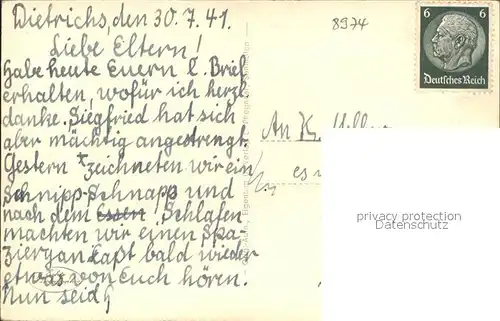 Dietrichs, den 30.7.41.
Liebe Eltern!
Habe heute Euern l. Brief
erhalten, wofür ich herzl.
danke. Siegfried hat sich
aber mächtig angestrengt.
Gestern zeichneten wir ein
Schnipp-Schnapp und
nach dem Essen Schlafen
machten wir einen Spa-
ziergan Laßt bald wieder
etwas von Euch hören.
Nun seid
8974
6 6
Deutsches Reich
An
es
privacy protection
Datenschutz